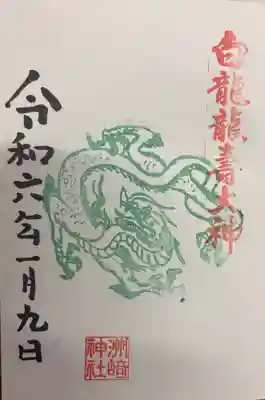 白龍龍壽大神
令和六年一月九日
洲崎
神社